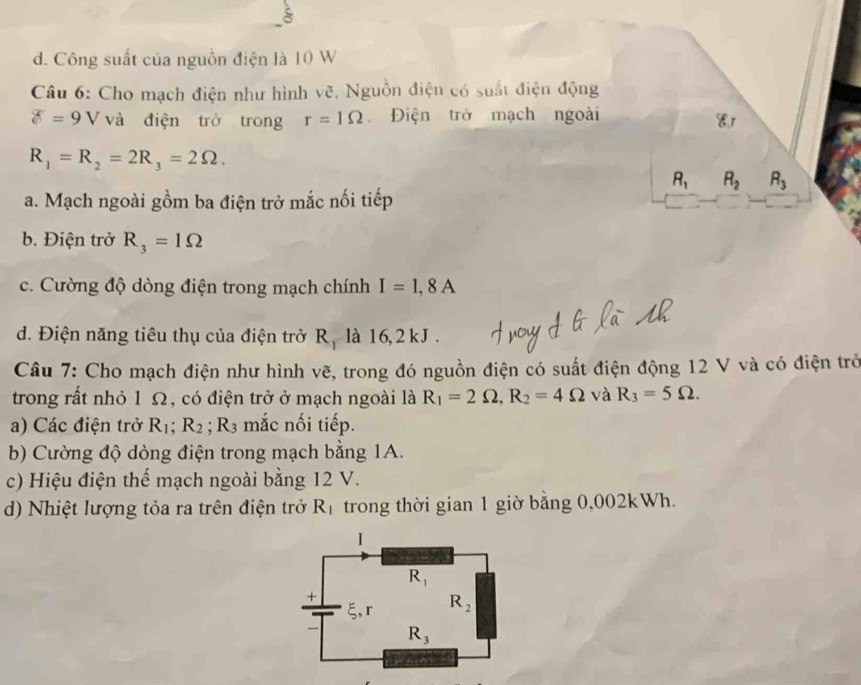 d. Công suất của nguồn điện là 10 W
Câu 6: Cho mạch điện như hình vẽ. Nguồn điện có suất điện động
ℰ = 9 V và điện trở trong r = 1Ω. Điện trở mạch ngoài
R₁ = R₂ = 2R₃ = 2Ω.
ℰ,r
R₁ R₂ R₃
a. Mạch ngoài gồm ba điện trở mắc nối tiếp
b. Điện trở R₃ = 1Ω
c. Cường độ dòng điện trong mạch chính I = 1, 8 A
d. Điện năng tiêu thụ của điện trở R₁ là 16, 2 kJ .
là 1h
Câu 7: Cho mạch điện như hình vẽ, trong đó nguồn điện có suất điện động 12 V và có điện trở
trong rất nhỏ 1 Ω, có điện trở ở mạch ngoài là R₁ = 2 Ω, R₂ = 4 Ω và R₃ = 5 Ω.
a) Các điện trở R₁; R₂ ; R₃ mắc nối tiếp.
b) Cường độ dòng điện trong mạch bằng 1A.
c) Hiệu điện thế mạch ngoài bằng 12 V.
d) Nhiệt lượng tỏa ra trên điện trở R₁ trong thời gian 1 giờ bằng 0,002kWh.
I
R₁
+
ξ, r
R₂
−
R₃